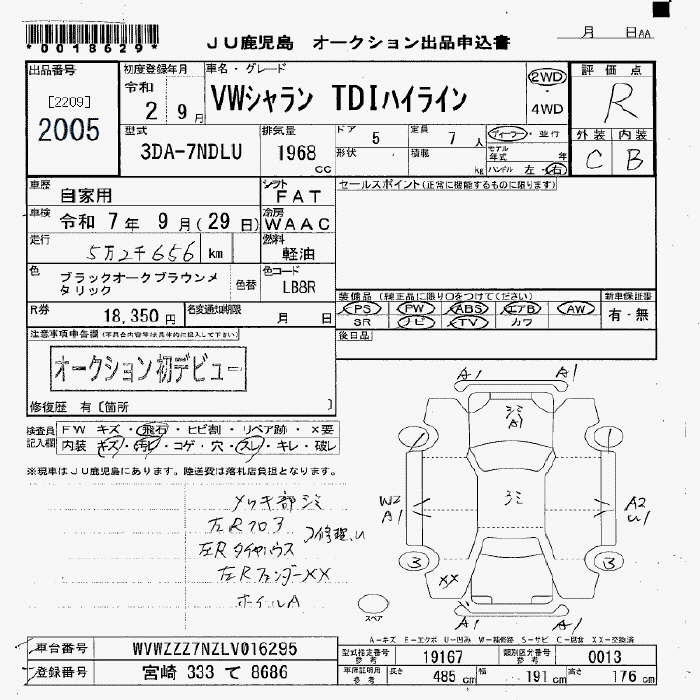 *0018629*
JU鹿児島 オークション出品申込書
月 日AA
出品番号
[2209]
2005
初度登録年月
令和
2 9月
車名・グレード
VWシャラン TDIハイライン
2WD
・
4WD
評価点
R
外装 内装
C B
型式
3DA-7NDLU
排気量
1968
cc
ドア 5
定員 7人
形状
積載 kg
ディーラー・並行
モデル年式 年
ハンドル 左・右
車歴
自家用
シフト
FAT
車検
令和 7年 9月(29日)
冷房
WAAC
走行
5万2千656 km
燃料
軽油
色
ブラックオークブラウンメタリック
色替
色コード
LB8R
R券
18,350円
名変通知期限
月 日
セールスポイント(正常に機能するものに限ります)
装備品(純正品に限り○をつけてください)
PS PW ABS エアB AW
SR ナビ TV カワ
新車保証書
有・無
後日品
注意事項申告欄(不具合内容等は具体的に記入して下さい)
オークション初デビュー
修復歴 有〔箇所 〕
検査員記入欄
FW キズ・飛石・ヒビ割・リペア跡・×要
内装 キズ・汚ビ・コゲ・穴・スレ・キレ・破レ
※現車はJU鹿児島にあります。陸送費は落札店負担となります。
メッキ部シミ
左Rフロア
左Rタイヤハウス
修理、U
左RフェンダーXX
ホイルA
A1 A1
シミ
A1
1 1
シミ
W2
A1
A2
U1
3 3
XX
A1 A1
スペア
A-キズ E-エクボ U-凹み W-補修跡 S-サビ C-腐食 XX-交換済
車台番号
WVWZZZ7NZLV016295
登録番号
宮崎 333 て 8686
型式指定番号
参考
19167
類別区分番号
参考
0013
車検証明用
参考
長さ 485cm
幅 191cm
高さ 176cm